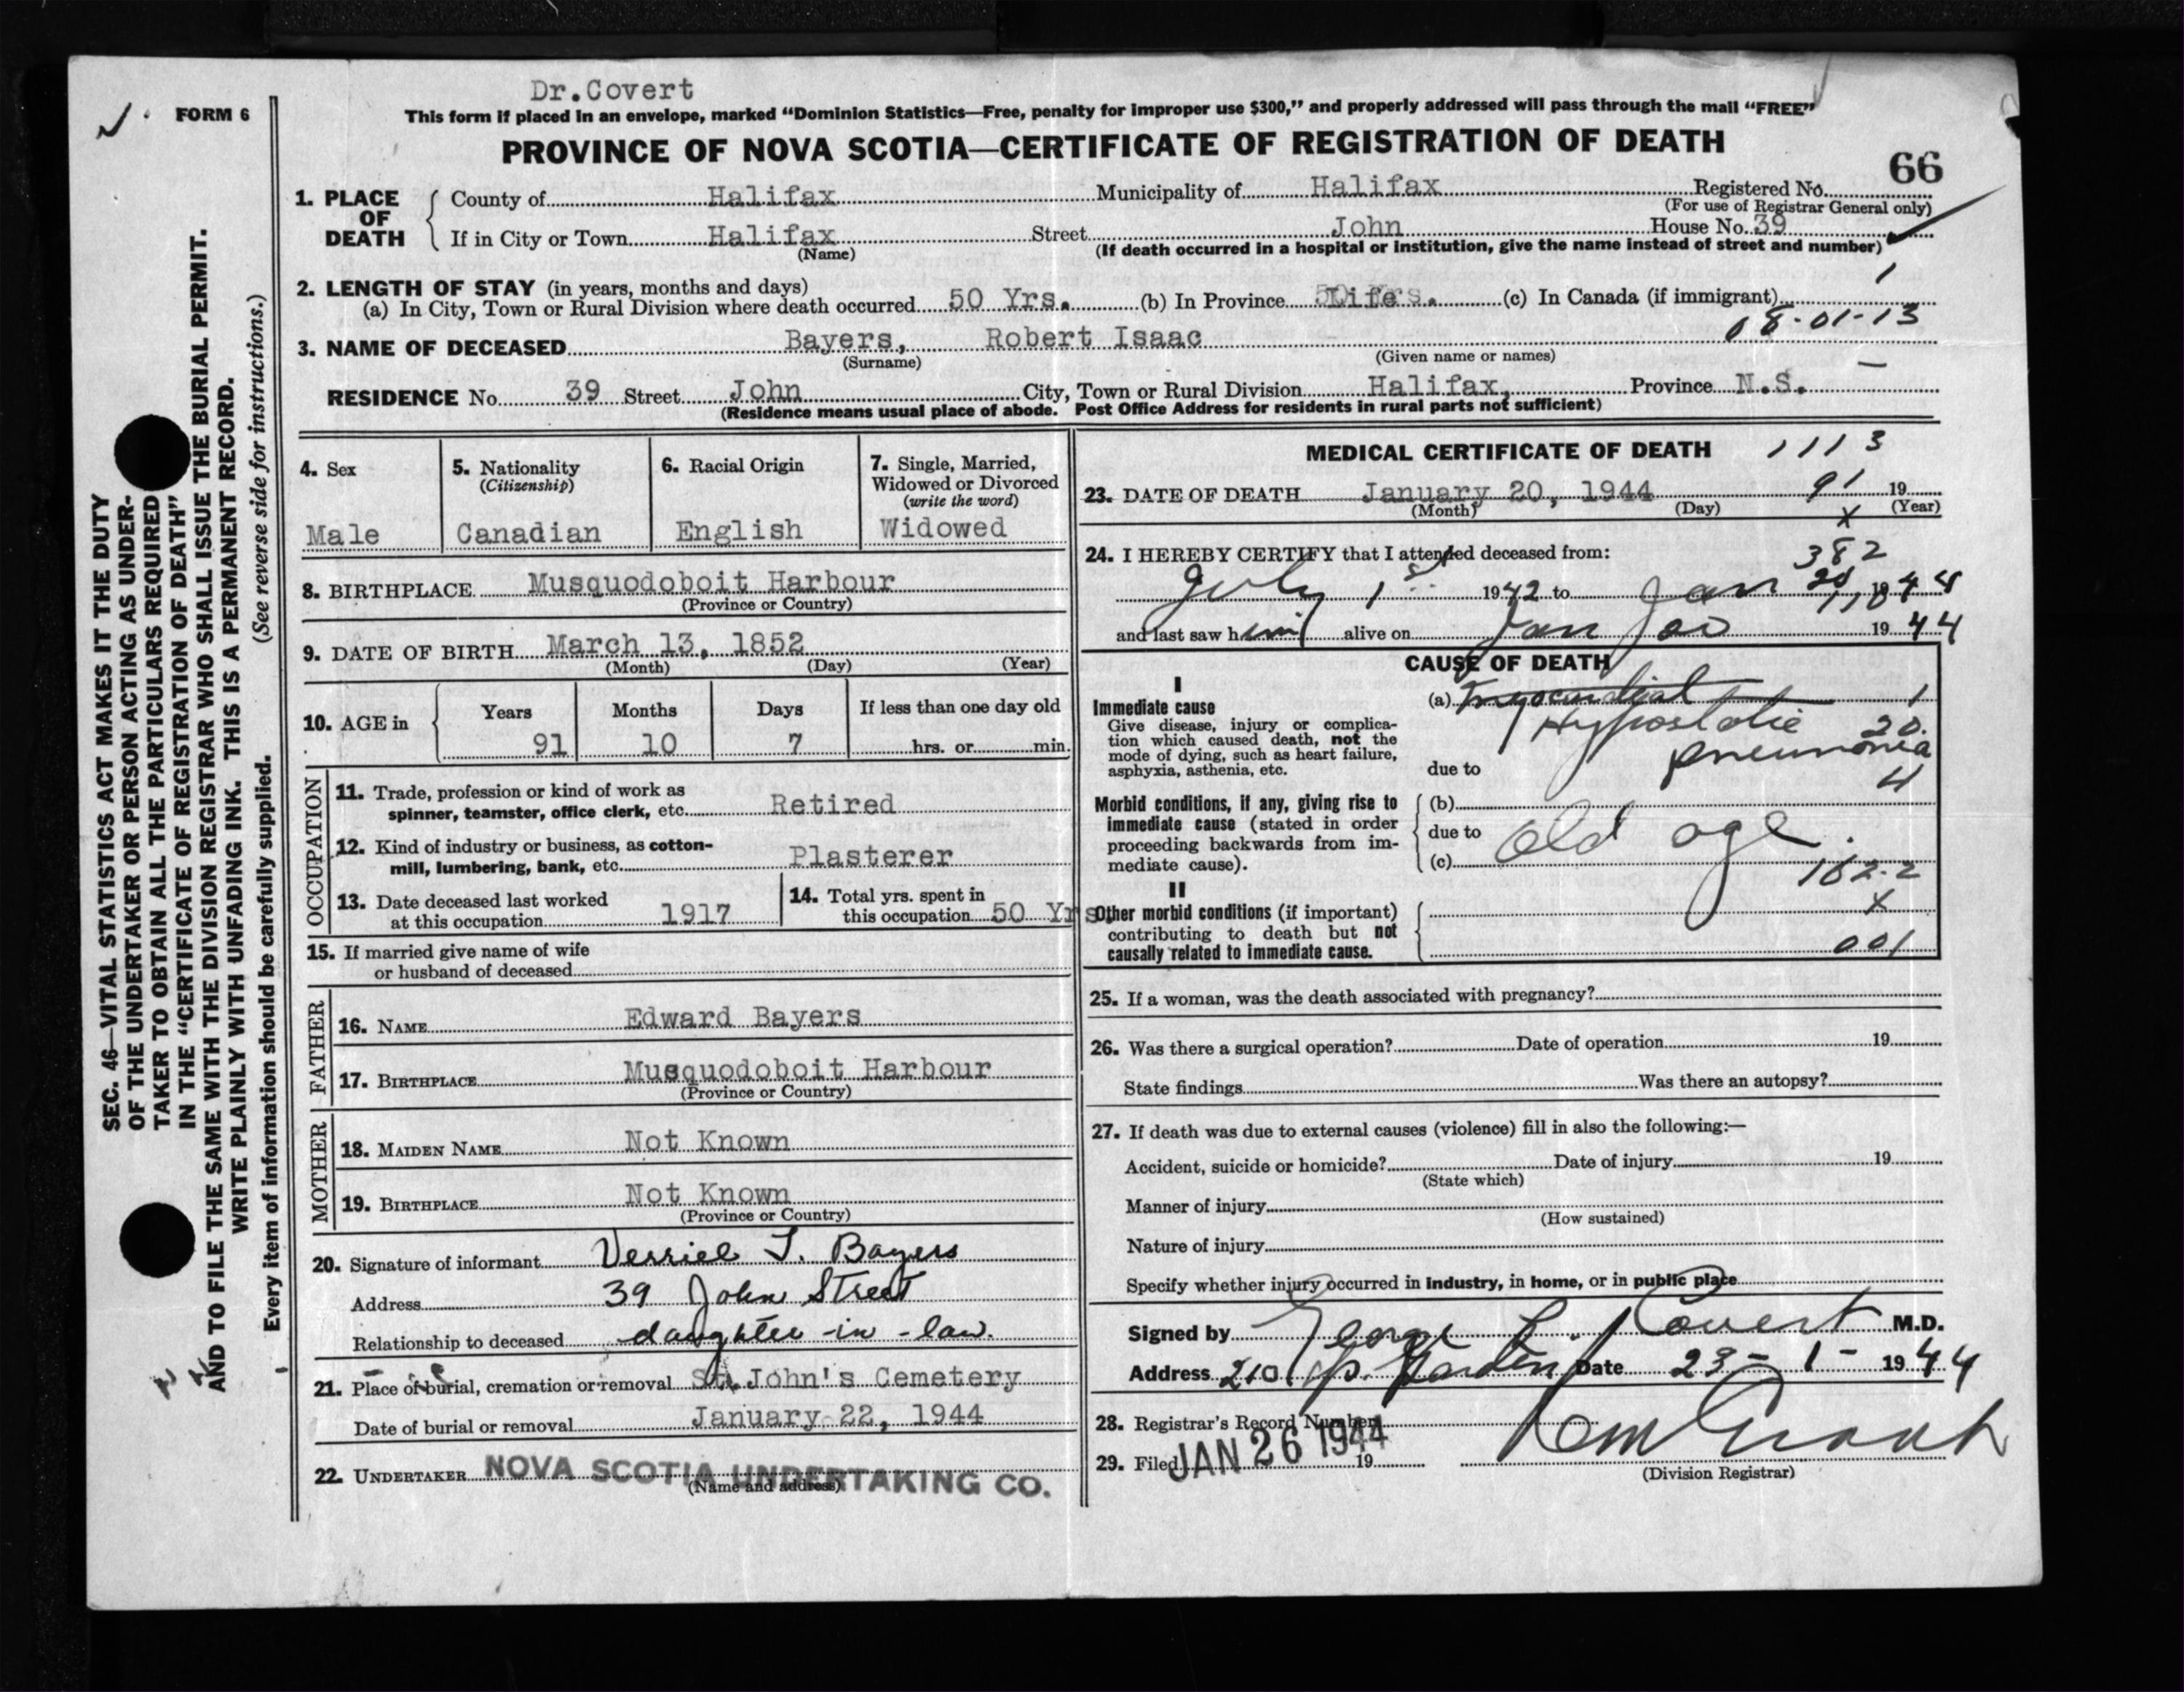 Dr.Covert
FORM 6
This form if placed in an envelope, marked "Dominion Statistics—Free, penalty for improper use $300," and properly addressed will pass through the mail "FREE"
PROVINCE OF NOVA SCOTIA—CERTIFICATE OF REGISTRATION OF DEATH
66
1. PLACE OF DEATH
County of Halifax Municipality of Halifax Registered No.
(For use of Registrar General only)
If in City or Town Halifax Street John House No. 39
(Name) (If death occurred in a hospital or institution, give the name instead of street and number)
1
2. LENGTH OF STAY (in years, months and days)
(a) In City, Town or Rural Division where death occurred 50 Yrs. (b) In Province Life (c) In Canada (if immigrant)
08-01-13
3. NAME OF DECEASED Bayers, Robert Isaac
(Surname) (Given name or names)
RESIDENCE No. 39 Street John City, Town or Rural Division Halifax, Province N.S.
(Residence means usual place of abode. Post Office Address for residents in rural parts not sufficient)
4. Sex
Male
5. Nationality
(Citizenship)
Canadian
6. Racial Origin
English
7. Single, Married,
Widowed or Divorced
(write the word)
Widowed
8. BIRTHPLACE Musquodoboit Harbour
(Province or Country)
9. DATE OF BIRTH March 13, 1852
(Month) (Day) (Year)
10. AGE in Years Months Days If less than one day old
91 10 7 hrs. or min.
OCCUPATION
11. Trade, profession or kind of work as
spinner, teamster, office clerk, etc. Retired
12. Kind of industry or business, as cotton-
mill, lumbering, bank, etc. Plasterer
13. Date deceased last worked
at this occupation 1917
14. Total yrs. spent in
this occupation 50 Yrs
15. If married give name of wife
or husband of deceased
FATHER
16. NAME Edward Bayers
17. BIRTHPLACE Musquodoboit Harbour
(Province or Country)
MOTHER
18. MAIDEN NAME Not Known
19. BIRTHPLACE Not Known
(Province or Country)
20. Signature of informant Verriel I. Bayers
Address 39 John Street
Relationship to deceased daughter-in-law.
21. Place of burial, cremation or removal St. John's Cemetery
Date of burial or removal January 22, 1944
22. UNDERTAKER NOVA SCOTIA UNDERTAKING CO.
(Name and address)
MEDICAL CERTIFICATE OF DEATH 1113
23. DATE OF DEATH January 20, 1944 91 19
(Month) (Day) (Year)
X
24. I HEREBY CERTIFY that I attended deceased from:
382
July 1st 1942 to Jan 20 1944
and last saw him alive on Jan 20 1944
CAUSE OF DEATH
I
Immediate cause
Give disease, injury or complica-
tion which caused death, not the
mode of dying, such as heart failure,
asphyxia, asthenia, etc.
(a) Myocardial 1
Hypostatic 20.
pneumonia
due to
4
Morbid conditions, if any, giving rise to
immediate cause (stated in order
proceeding backwards from im-
mediate cause).
(b)
due to Old age.
(c)
162-2
II
X
Other morbid conditions (if important)
contributing to death but not
causally related to immediate cause.
001
25. If a woman, was the death associated with pregnancy?
26. Was there a surgical operation? Date of operation 19
State findings Was there an autopsy?
27. If death was due to external causes (violence) fill in also the following:—
Accident, suicide or homicide? Date of injury 19
(State which)
Manner of injury
(How sustained)
Nature of injury
Specify whether injury occurred in industry, in home, or in public place
Signed by George L. Covert M.D.
Address 210 Sp. Garden Date 23-1-1944
28. Registrar's Record Number
29. Filed JAN 26 1944 19
(Division Registrar)
SEC. 46—VITAL STATISTICS ACT MAKES IT THE DUTY
OF THE UNDERTAKER OR PERSON ACTING AS UNDER-
TAKER TO OBTAIN ALL THE PARTICULARS REQUIRED
IN THE "CERTIFICATE OF REGISTRATION OF DEATH"
AND TO FILE THE SAME WITH THE DIVISION REGISTRAR WHO SHALL ISSUE THE BURIAL PERMIT.
WRITE PLAINLY WITH UNFADING INK. THIS IS A PERMANENT RECORD.
Every item of information should be carefully supplied. (See reverse side for instructions.)